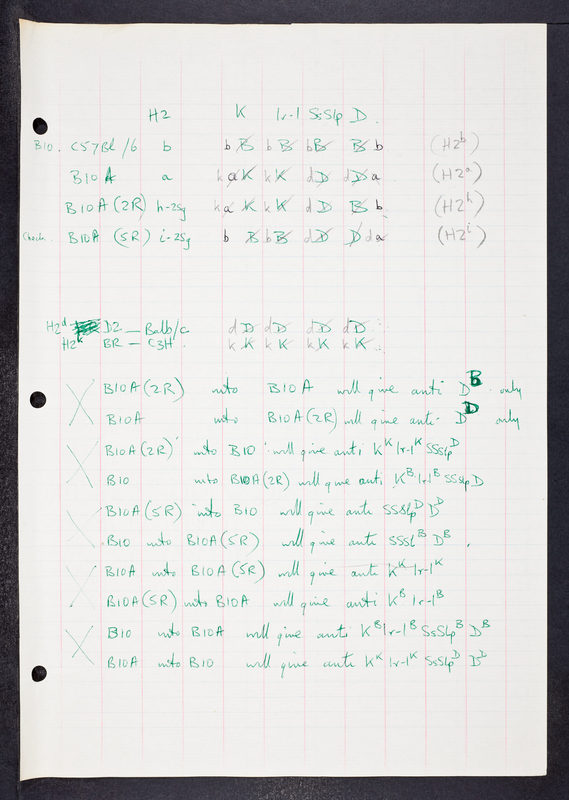 H2 K Ir-1 SsSlp D
B10. C57Bl/6 b b B b B b B B b (H2b)
B10 A a k a K k K d D d D a (H2a)
B10A (2R) h-2Sg k a K k K d D B b (H2h)
Check. B10A (5R) i-2Sg b B b B d D D d a (H2i)
H2d D2 — Balb/c d D d D d D d D
H2k BR — C3H k K k K k K k K
B10A (2R) into B10A will give anti DB only
B10A into B10A (2R) will give anti DD only
B10A (2R) into B10 will give anti KK Ir-1K SsSlpD
B10 into B10A (2R) will give anti KB Ir-1B SsSlp D
B10A (5R) into B10 will give anti SSSlpD DD
B10 into B10A (5R) will give anti SSSlB DB.
B10A into B10A (5R) will give anti KK Ir-1K
B10A (5R) into B10A will give anti KB Ir-1B
B10 into B10A will give anti KB Ir-1B SsSlpB DB
B10A into B10 will give anti KK Ir-1K SsSlpD DD